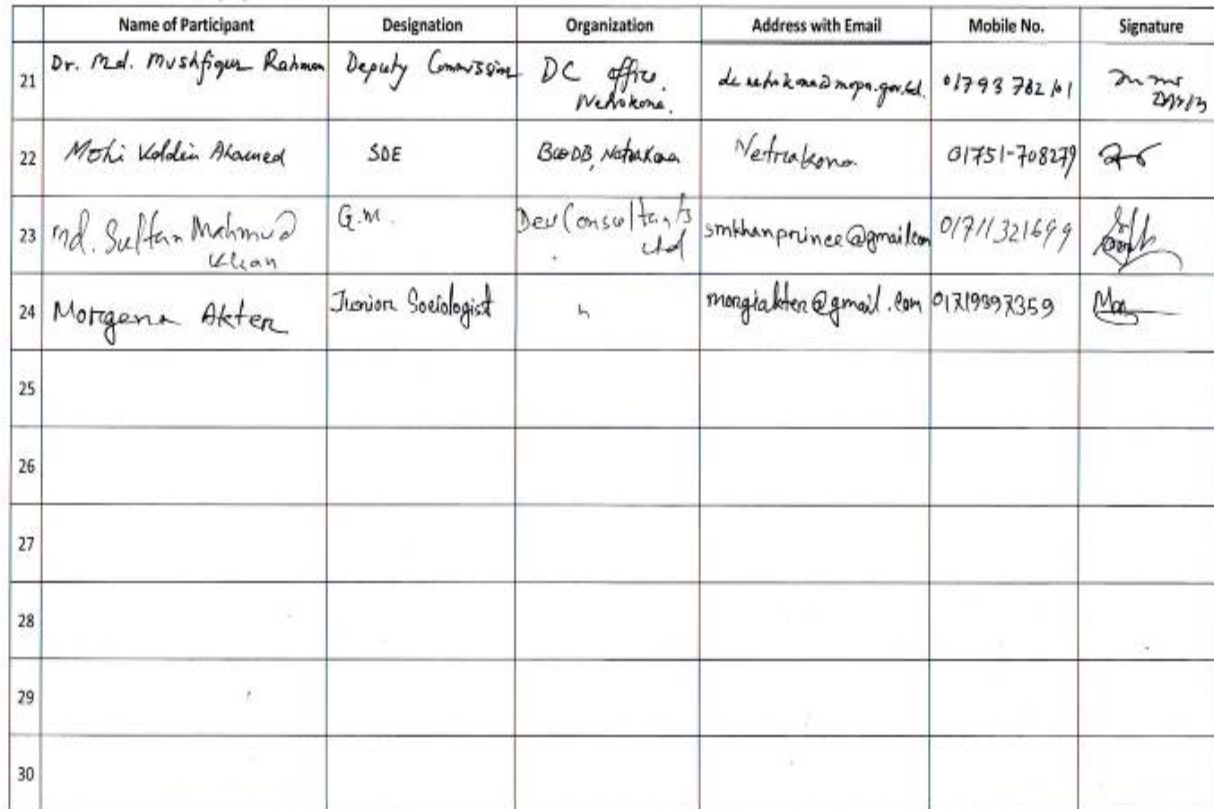 Name of Participant Designation Organization Address with Email Mobile No. Signature
21 Dr. Md. Mushfiqur Rahman Deputy Commission DC office. Netrokona. 01793 782101
22 Mohi Uddin Ahamed SDE Netrakona 01751-708279
23 Md. Sultan Mahmud Khan G.M. Dev Consultants Ltd smkhanprince@gmail.com 01711321699
24 Morgena Akter Junior Sociologist morgiakter@gmail.com
25
26
27
28
29
30